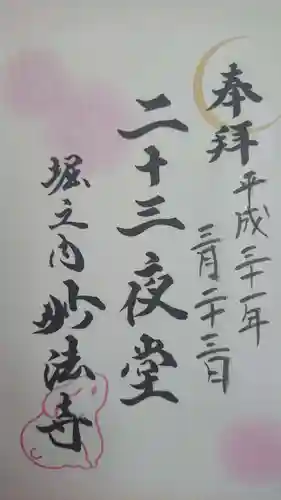 奉拝
平成三十一年
三月二十三日
二十三夜堂
堀之内
妙法寺